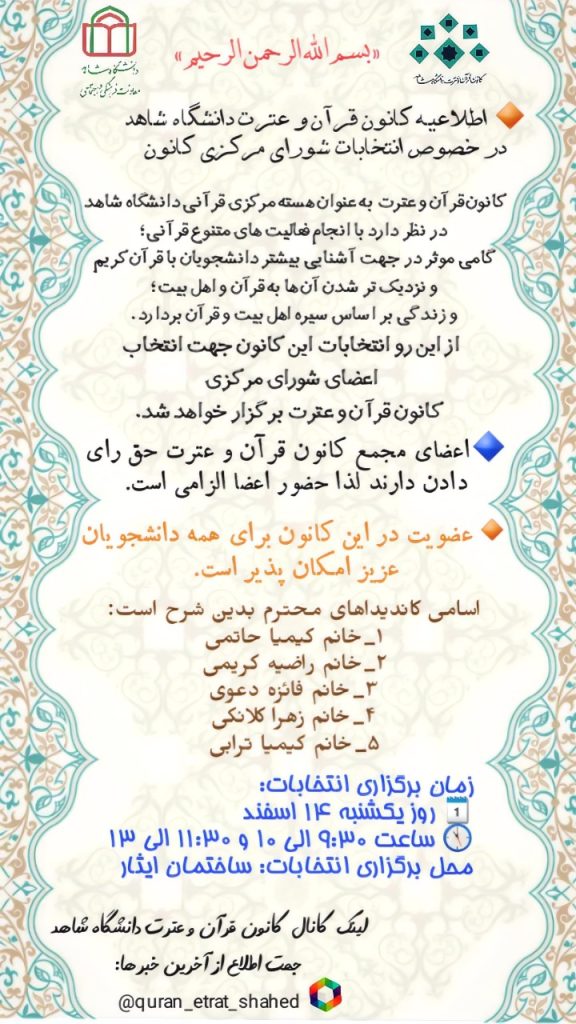 دانشگاه شاهد
معاونت فرهنگی و اجتماعی
کانون قرآن و عترت دانشگاه شاهد
«بسم الله الرحمن الرحیم»
اطلاعیه کانون قرآن و عترت دانشگاه شاهد
در خصوص انتخابات شورای مرکزی کانون
کانون قرآن و عترت به عنوان هسته مرکزی قرآنی دانشگاه شاهد
در نظر دارد با انجام فعالیت های متنوع قرآنی؛
گامی موثر در جهت آشنایی بیشتر دانشجویان با قرآن کریم
و نزدیک تر شدن آن‌ها به قرآن و اهل بیت؛
و زندگی بر اساس سیره اهل بیت و قرآن بردارد.
از این رو انتخابات این کانون جهت انتخاب
اعضای شورای مرکزی
کانون قرآن و عترت برگزار خواهد شد.
اعضای مجمع کانون قرآن و عترت حق رای
دادن دارند لذا حضور اعضا الزامی است.
عضویت در این کانون برای همه دانشجویان
عزیز امکان پذیر است.
اسامی کاندیداهای محترم بدین شرح است:
۱_خانم کیمیا حاتمی
۲_خانم راضیه کریمی
۳_خانم فائزه دعوی
۴_خانم زهرا کلانکی
۵_خانم کیمیا ترابی
زمان برگزاری انتخابات:
1 روز یکشنبه ۱۴ اسفند
ساعت ۹:۳۰ الی ۱۰ و ۱۱:۳۰ الی ۱۳
محل برگزاری انتخابات: ساختمان ایثار
لینک کانال کانون قرآن و عترت دانشگاه شاهد
جهت اطلاع از آخرین خبرها:
@quran_etrat_shahed